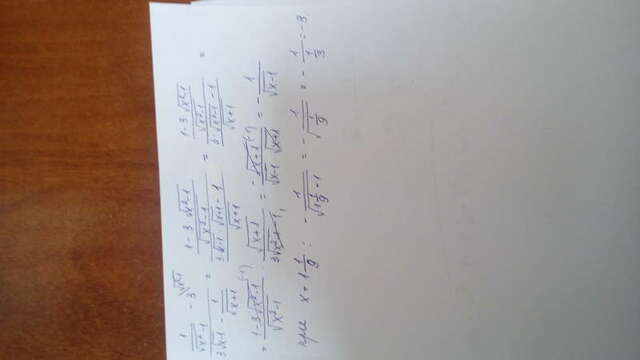 (1/√(x²-1) - 3^(√(x²-1))) / (3√(x-1) - 1/√(x+1)) = ((1-3·√(x²-1))/√(x²-1)) / ((3√(x-1)·√(x+1) - 1)/√(x+1)) = ((1-3·√(x²-1))/√(x²-1)) / ((3·√(x²-1) - 1)/√(x+1)) =
= (1-3√(x²-1))/√(x²-1) · √(x+1)/(3√(x²-1)-1) = -√(x+1)/(√(x-1)·√(x+1)) = -1/√(x-1)
при x = 1 1/9 : -1/√(1 1/9 - 1) = -1/√(1/9) = -1/(1/3) = -3